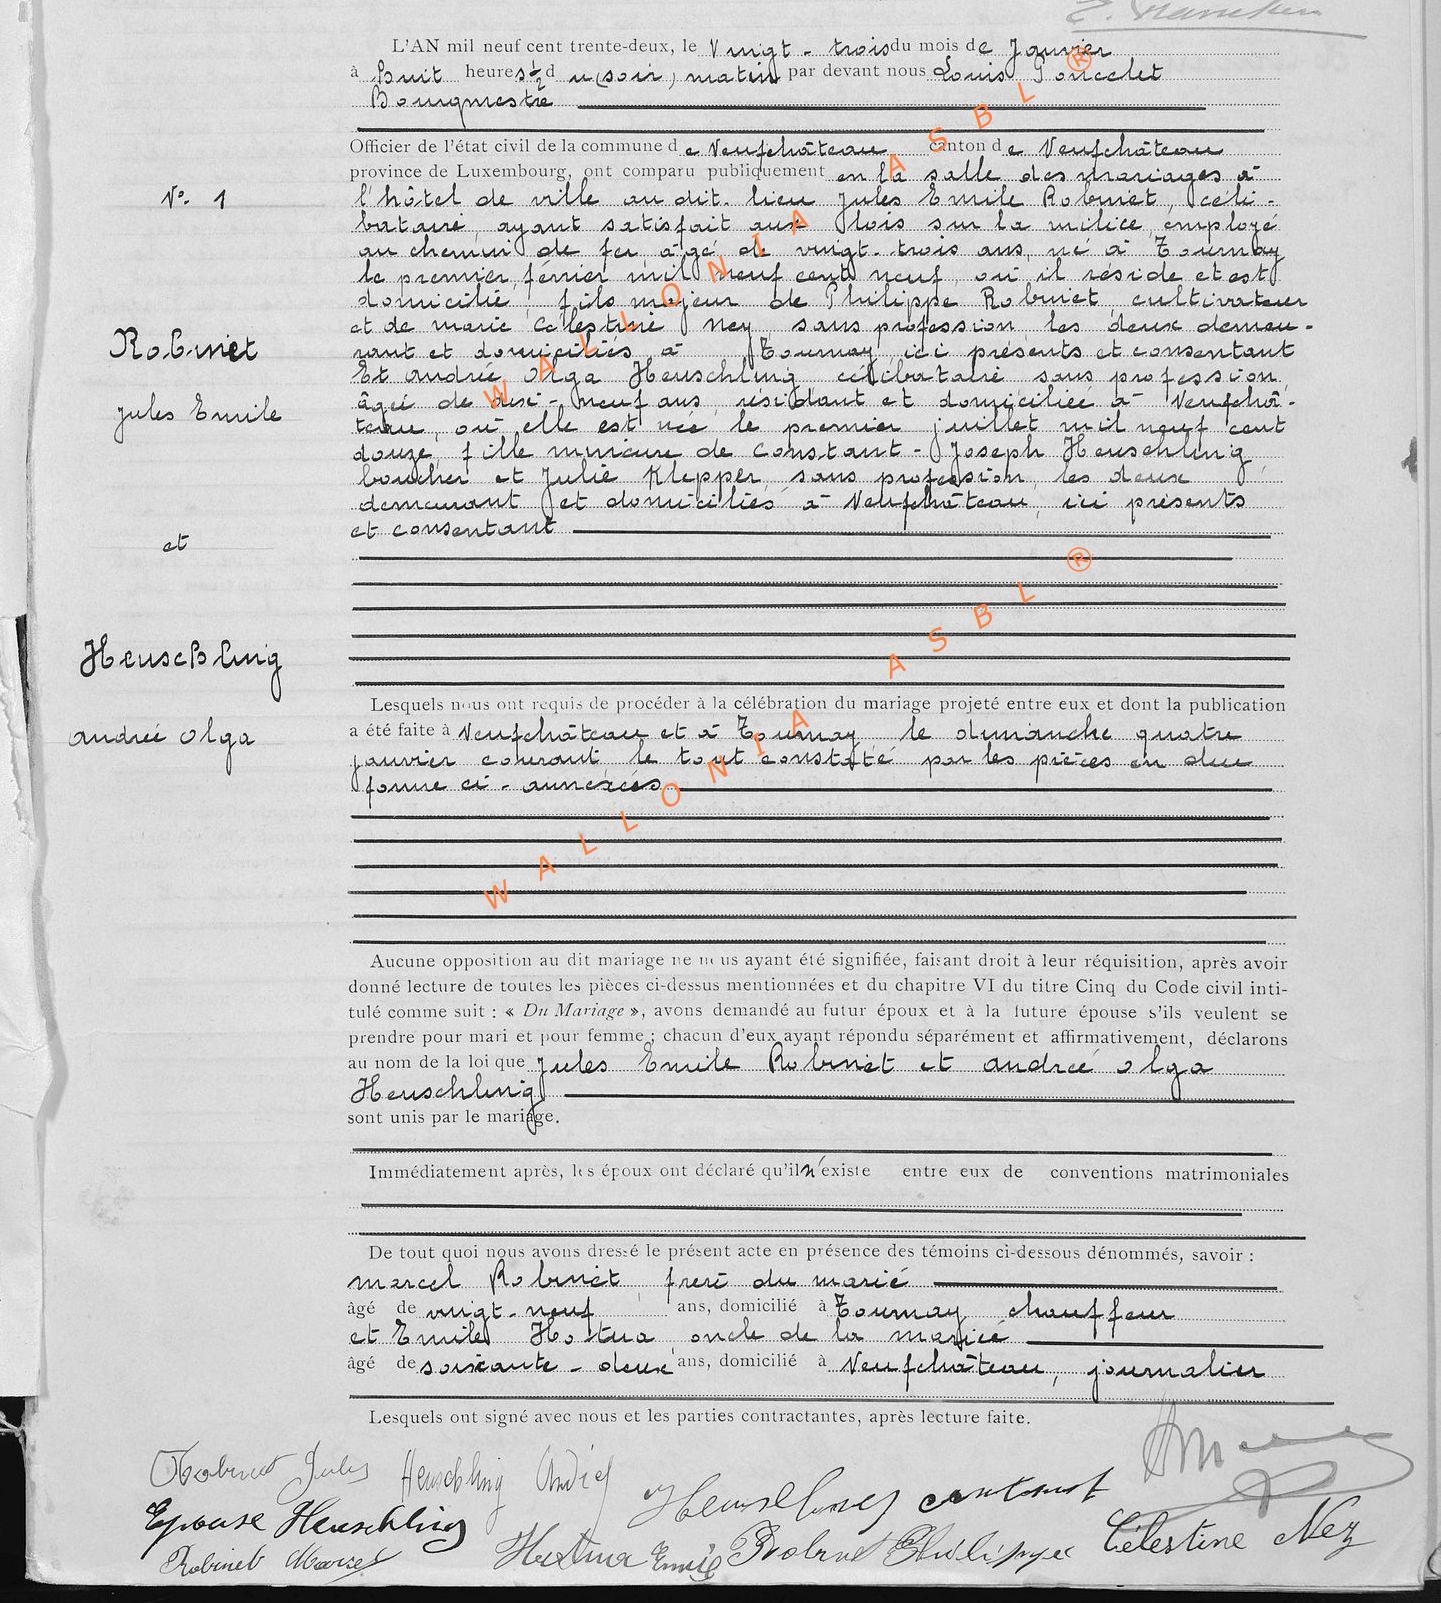 L'AN mil neuf cent trente-deux, le Vingt-trois du mois de Janvier
à huit heures ½ du (soir) matin par devant nous Louis Poncelet
Bourgmestre
Officier de l'état civil de la commune de Neufchâteau canton de Neufchâteau
province de Luxembourg, ont comparu publiquement en la salle des mariages à
N° 1
l'hôtel de ville au dit lieu Jules Emile Robinet, céli-
bataire, ayant satisfait aux lois sur la milice, employé
au chemin de fer âgé de vingt-trois ans, né à Tournay
le premier février mil neuf cent neuf, où il réside et est
domicilié, fils majeur de Philippe Robinet, cultivateur
et de marie Célestine Ney sans profession les deux demeu-
Robinet
rant et domiciliés à Tournay, ici présents et consentant
Et andrée Olga Heuschling, célibataire sans profession,
Jules Emile
âgée de dix-neuf ans, résidant et domiciliée à Neufchâ-
teau, où elle est née le premier juillet mil neuf cent
douze, fille mineure de Constant-Joseph Heuschling
boucher et Julie Klepper, sans profession, les deux
demeurant et domiciliés à Neufchâteau, ici présents
et consentant
et
Heuschling
andrée olga
Lesquels nous ont requis de procéder à la célébration du mariage projeté entre eux et dont la publication
a été faite à Neufchâteau et à Tournay le dimanche quatre
janvier courant le tout constaté par les pièces en due
forme ci-annexées
Aucune opposition au dit mariage ne nous ayant été signifiée, faisant droit à leur réquisition, après avoir
donné lecture de toutes les pièces ci-dessus mentionnées et du chapitre VI du titre Cinq du Code civil inti-
tulé comme suit : « Du Mariage », avons demandé au futur époux et à la future épouse s'ils veulent se
prendre pour mari et pour femme ; chacun d'eux ayant répondu séparément et affirmativement, déclarons
au nom de la loi que Jules Emile Robinet et andrée olga
Heuschling
sont unis par le mariage.
Immédiatement après, les époux ont déclaré qu'il n'existe entre eux de conventions matrimoniales
De tout quoi nous avons dressé le présent acte en présence des témoins ci-dessous dénommés, savoir :
marcel Robinet, frère du marié
âgé de vingt-neuf ans, domicilié à Tournay chauffeur
et Emile Hostua oncle de la mariée
âgé de soixante-deux ans, domicilié à Neufchâteau, journalier
Lesquels ont signé avec nous et les parties contractantes, après lecture faite.
Robinet Jules Heuschling Andrée Heuschling constant
Epouse Heuschling
Robinet Marcel Hostua Emile Robinet Philippe Célestine Ney
WALLONIA ASBL ®
WALLONIA ASBL ®